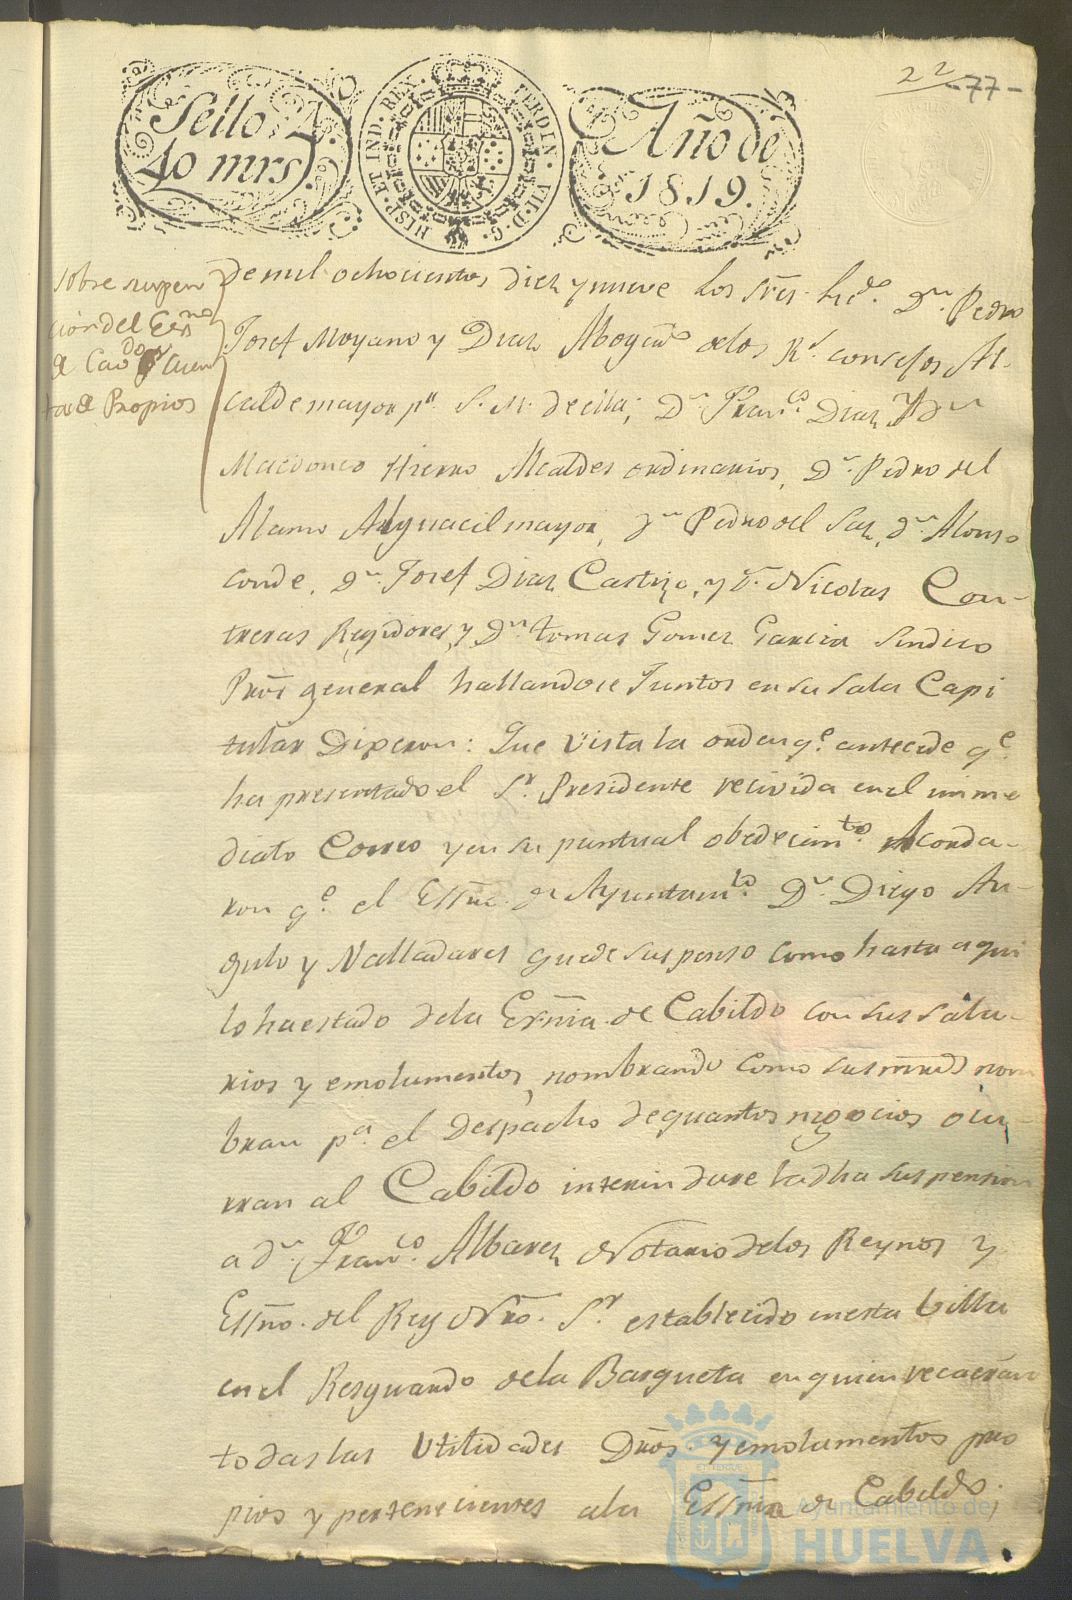 22
-77-
Sello 4.
40 mrs.
HISP. ET IND. REX. FERDIN. VII. D. G.
Año de
1819.
sobre suspen
cion del Essno
de Cavdo y Cuen
tas de Propios
de mil ochocientos diez y nueve los sres. Licdo. Dn. Pedro
Josef Moyano y Diaz Abogado de los Rs. consejos Al-
calde mayor pr. S. M. de ella; Dn. Franco. Diaz y Dn
Macedonio Hierro Alcaldes ordinarios, Dn. Pedro del
Alamo Alguacil mayor, dn Pedro del Saz, dn Alonso
conde, Dn. Josef Diaz Castizo, y D. Nicolas Con-
treras Regidores, y Dn. tomas Gomez Garcia Sindico
Pror. general hallandose Juntos en su sala Capi
tular Dixeron: Que vista la orden qe. antecede qe.
ha presentado el Sr. Presidente recivida en el inme
diato Correo y en su puntual obedecimto. Acorda-
ron qe. el Essno. de Ayuntamto. Dn. Diego An-
gulo y Valladares quede suspenso como hasta aqui
lo ha estado de la Esnia. de Cabildo con sus sala-
rios y emolumentos, nombrando como sus mrds nom
bran pa. el Despacho de quantos negocios ocu-
rran al Cabildo interin dure la dha suspension
a dn. Franco. Albarez Notario de los Reynos y
Essno. del Rey Nro. Sr. establecido en esta billa
en el Resguardo de la Barqueta en quien recaeran
todas las Utilidades Dros. y emolumentos pro
pios y pertenecientes a la Essnia de Cabildo;
Ayuntamiento de
HUELVA